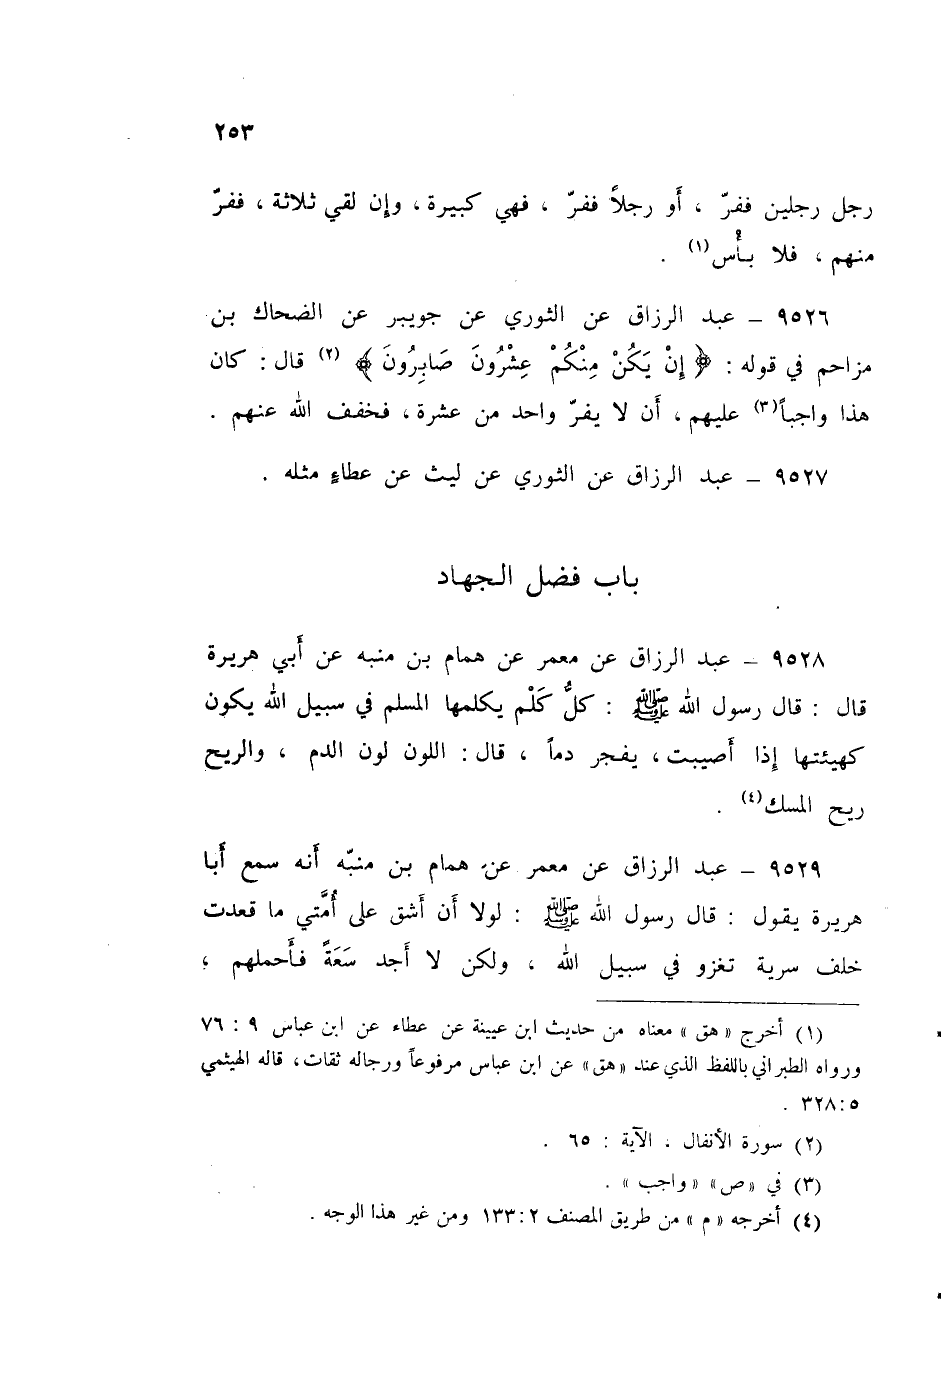 ٢٥٣
رجل رجلين ففرّ ، أَو رجلاً ففرّ ، فهي كبيرة ، وإِن لقي ثلاثة ، ففرّ
منهم ، فلا بأْس(١) .
٩٥٢٦ – عبد الرزاق عن الثوري عن جويبر عن الضحاك بن
مزاحم في قوله : ﴿ إِنْ يَكُنْ مِنْكُمْ عِشْرُونَ صَابِرُونَ ﴾ (٢) قال : كان
هذا واجباً(٣) عليهم ، أَن لا يفرّ واحد من عشرة ، فخفف الله عنهم .
٩٥٢٧ – عبد الرزاق عن الثوري عن ليث عن عطاءٍ مثله .
باب فضل الجهاد
٩٥٢٨ – عبد الرزاق عن معمر عن همام بن منبه عن أَبي هريرة
قال : قال رسول الله ﷺ : كلُّ كَلْم يكلمها المسلم في سبيل الله يكون
كهيئتها إِذا أَصيبت ، يفجر دماً ، قال : اللون لون الدم ، والريح
ريح المسك(٤) .
٩٥٢٩ – عبد الرزاق عن معمر عن همام بن منبّه أَنه سمع أَبا
هريرة يقول : قال رسول الله ﷺ : لولا أَن أَشق على أُمَّتي ما قعدت
خلف سرية تغزو في سبيل الله ، ولكن لا أَجد سَعَةً فأَحملهم ؛
(١) أخرج «هق» معناه من حديث ابن عيينة عن عطاء عن ابن عباس ٩ : ٧٦
ورواه الطبراني باللفظ الذي عند «هق» عن ابن عباس مرفوعاً ورجاله ثقات ، قاله الهيثمي
٥ : ٣٢٨ .
(٢) سورة الأنفال ، الآية : ٦٥ .
(٣) في «ص» «واجب» .
(٤) أخرجه «م» من طريق المصنف ٢ : ١٣٣ ومن غير هذا الوجه .